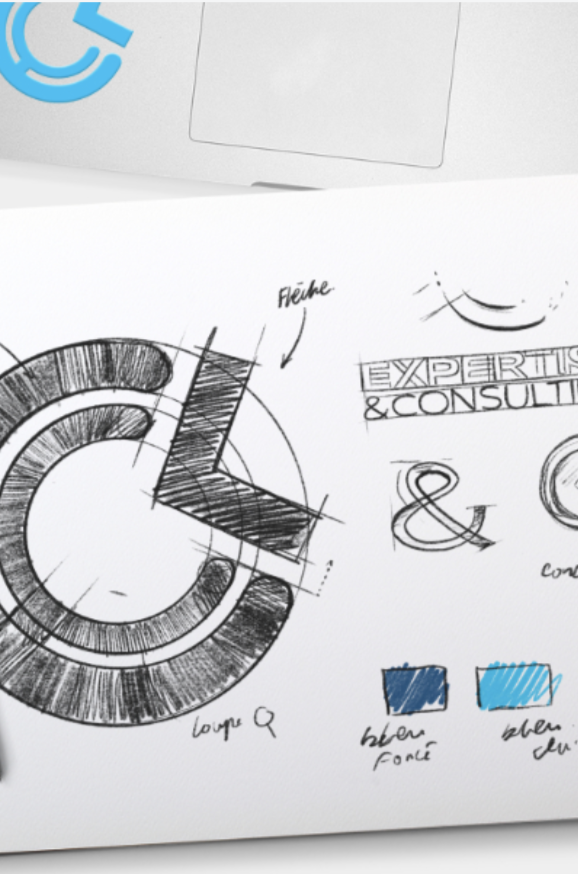 Flèche
EXPERTIS
& CONSULTI
&
Conc
Loupe Q
bleu
Foncé
bleu